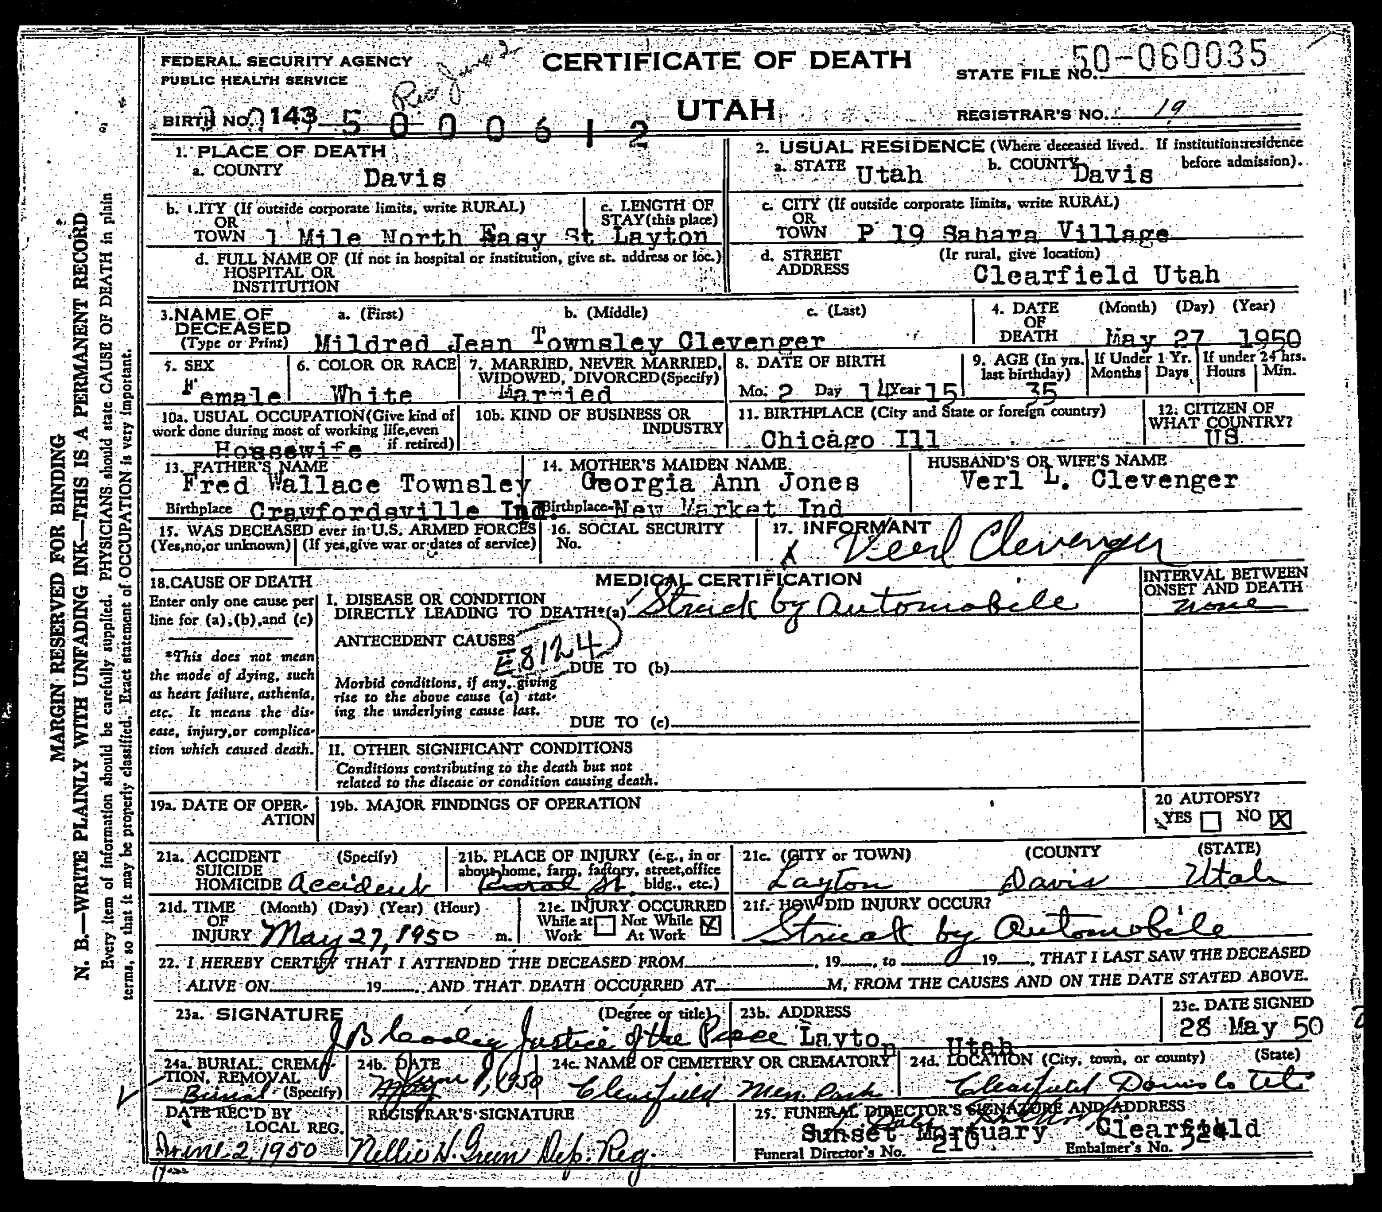 CERTIFICATE OF DEATH
UTAH
FEDERAL SECURITY AGENCY
PUBLIC HEALTH SERVICE
Rec June 2
STATE FILE NO. 50-060035
BIRTH NO. 143 5 0 0 0 6 1 2
REGISTRAR'S NO. 19
1. PLACE OF DEATH
a. COUNTY
Davis
2. USUAL RESIDENCE (Where deceased lived. If institution:residence
before admission).
a. STATE Utah b. COUNTY Davis
b. CITY (If outside corporate limits, write RURAL)
OR
TOWN 1 Mile North Easy St Layton
c. LENGTH OF
STAY (this place)
c. CITY (If outside corporate limits, write RURAL)
OR
TOWN P 19 Sahara Village
d. FULL NAME OF (If not in hospital or institution, give st. address or loc.)
HOSPITAL OR
INSTITUTION
d. STREET (If rural, give location)
ADDRESS Clearfield Utah
3. NAME OF
DECEASED
(Type or Print)
a. (First) b. (Middle) c. (Last)
Mildred Jean Townsley Clevenger
4. DATE (Month) (Day) (Year)
OF
DEATH May 27 1950
5. SEX
Female
6. COLOR OR RACE
White
7. MARRIED, NEVER MARRIED,
WIDOWED, DIVORCED(Specify)
Married
8. DATE OF BIRTH
Mo. 2 Day 14 Year 15
9. AGE (In yrs.
last birthday)
35
If Under 1 Yr.
Months Days
If under 24 hrs.
Hours Min.
10a. USUAL OCCUPATION(Give kind of
work done during most of working life,even
if retired)
Housewife
10b. KIND OF BUSINESS OR
INDUSTRY
11. BIRTHPLACE (City and State or foreign country)
Chicago Ill
12. CITIZEN OF
WHAT COUNTRY?
US
13. FATHER'S NAME
Fred Wallace Townsley
Birthplace Crawfordsville Ind.
14. MOTHER'S MAIDEN NAME
Georgia Ann Jones
Birthplace New Market Ind
HUSBAND'S OR WIFE'S NAME
Verl L. Clevenger
15. WAS DECEASED ever in U.S. ARMED FORCES
(Yes,no,or unknown) (If yes,give war or dates of service)
16. SOCIAL SECURITY
No.
17. INFORMANT
X Verl Clevenger
18. CAUSE OF DEATH
Enter only one cause per
line for (a),(b),and (c)
*This does not mean
the mode of dying, such
as heart failure, asthenia,
etc. It means the dis-
ease, injury,or complica-
tion which caused death.
MEDICAL CERTIFICATION
I. DISEASE OR CONDITION
DIRECTLY LEADING TO DEATH*(a) Struck by automobile
INTERVAL BETWEEN
ONSET AND DEATH
none
ANTECEDENT CAUSES
E8124
DUE TO (b)
Morbid conditions, if any, giving
rise to the above cause (a) stat-
ing the underlying cause last.
DUE TO (c)
II. OTHER SIGNIFICANT CONDITIONS
Conditions contributing to the death but not
related to the disease or condition causing death.
19a. DATE OF OPER-
ATION
19b. MAJOR FINDINGS OF OPERATION
20 AUTOPSY?
YES NO X
21a. ACCIDENT (Specify)
SUICIDE
HOMICIDE Accident
21b. PLACE OF INJURY (e.g., in or
about home, farm, factory, street,office
bldg., etc.)
Rural St.
21c. (CITY or TOWN) (COUNTY (STATE)
Layton Davis Utah
21d. TIME (Month) (Day) (Year) (Hour)
OF
INJURY May 27, 1950 m.
21e. INJURY OCCURRED
While at Not While X
Work At Work
21f. HOW DID INJURY OCCUR?
Struck by Automobile
22. I HEREBY CERTIFY THAT I ATTENDED THE DECEASED FROM , 19 , to 19 , THAT I LAST SAW THE DECEASED
ALIVE ON 19 , AND THAT DEATH OCCURRED AT M, FROM THE CAUSES AND ON THE DATE STATED ABOVE.
23a. SIGNATURE (Degree or title)
Justice of the Peace
23b. ADDRESS
Layton Utah
23c. DATE SIGNED
28 May 50
24a. BURIAL, CREMA-
TION, REMOVAL
(Specify)
Burial
24b. DATE
June 1, 1950
24c. NAME OF CEMETERY OR CREMATORY
Clearfield Mem. Park
24d. LOCATION (City, town, or county) (State)
Clearfield Davis Co Ut
DATE REC'D BY
LOCAL REG.
June 2, 1950
REGISTRAR'S SIGNATURE
Nellie H. Green Dep. Reg.
25. FUNERAL DIRECTOR'S SIGNATURE AND ADDRESS
Sunset Mortuary Clearfield
Funeral Director's No. 210 Embalmer's No. 524
MARGIN RESERVED FOR BINDING
N. B.—WRITE PLAINLY WITH UNFADING INK—THIS IS A PERMANENT RECORD
Every item of information should be carefully supplied. PHYSICIANS should state CAUSE OF DEATH in plain
terms, so that it may be properly classified. Exact statement of OCCUPATION is very important.